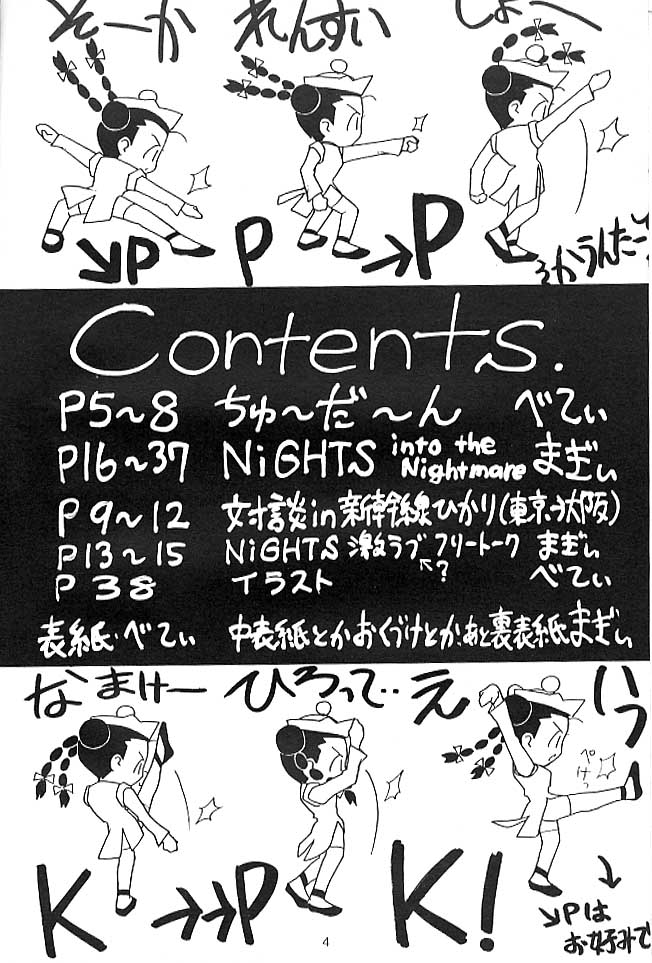 そーか れんすい しょー
↘P P →P
ろかうんたーで
Contents.
P5～8 ちゅ～だ～ん べてぃ
P16～37 NiGHTS into the Nightmare まぎぃ
P9～12 対談in新幹線ひかり(東京→大阪)
P13～15 NiGHTS激ラブフリートーク まぎぃ
↖?
P38 イラスト べてぃ
表紙・べてぃ 中表紙とかおくづけとか、あと裏表紙まぎぃ
なまけー ひろって‥ え いっ
ぺけっ
K →→P K!
↓
↘Pは
お好みで
4